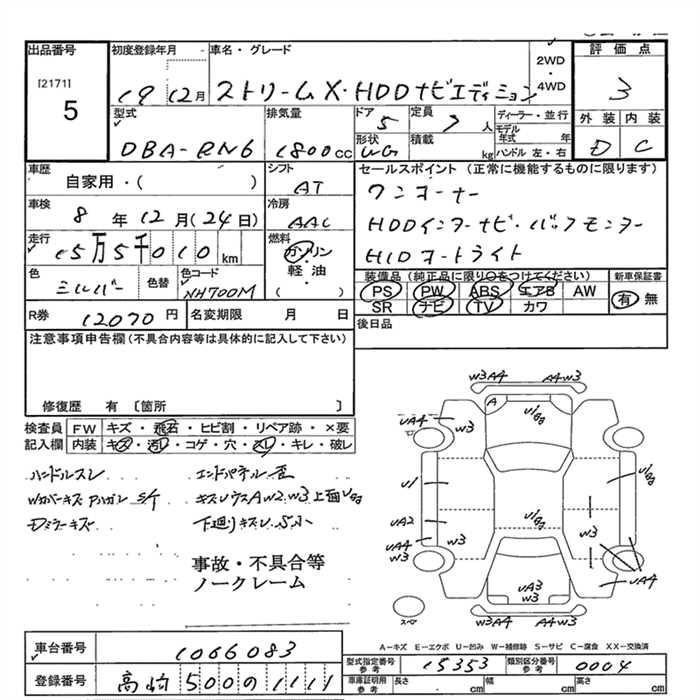 出品番号
[2171]
5
初度登録年月
19 12月
車名・グレード
ストリーム X・HDDナビエディション
2WD
・
4WD
評価点
3
外装 内装
D C
型式
DBA-RN6
排気量
1800cc
ドア
5
定員
7人
形状
WG
積載
kg
ディーラー・並行
モデル年式 年
ハンドル 左・右
車歴
自家用・( )
シフト
AT
セールスポイント (正常に機能するものに限ります)
ワンオーナー
HDDインターナビ・バックモニター
HIDオートライト
車検
8年12月(24日)
冷房
AAC
走行
15万5千010km
燃料
ガソリン
・
軽・油
( )
色
シルバー
色替
色コード
NH700M
装備品 (純正品に限り〇をつけてください)
PS PW ABS エアB AW
SR ナビ TV カワ
新車保証書
有 無
R券
12070円
名変期限 月 日
後日品
注意事項申告欄 (不具合内容等は具体的に記入して下さい)
修復歴 有 〔箇所 〕
検査員記入欄
FW キズ・飛石・ヒビ割・リペア跡・×要
内装 キズ・汚レ・コゲ・穴・スレ・キレ・破レ
ハンドルスレ
エンドパネル歪
Dミラーキズ
事故・不具合等
ノークレーム
W3A4 A4W3
A
U/gg
UA4
W3
U1
UA2
UA4
W3
U/gg
U/gg
W3
UA4
UA3
W3
W3A4 A4W3
スペア
A-キズ E-エクボ U-凹み W-補修跡 S-サビ C-腐食 XX-交換済
車台番号
1066083
登録番号
高崎 500の1111
型式指定番号
参考
15353
類別区分番号
参考
0004
車庫証明用
参考
長さ cm
幅 cm
高さ cm